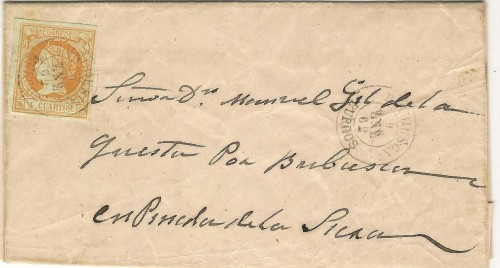 CORREOS
4 CUARTOS
Señor Dn Manuel Gil de la
Questa Por Barbiesca
en Pineda de la Sierra
BURGOS
62